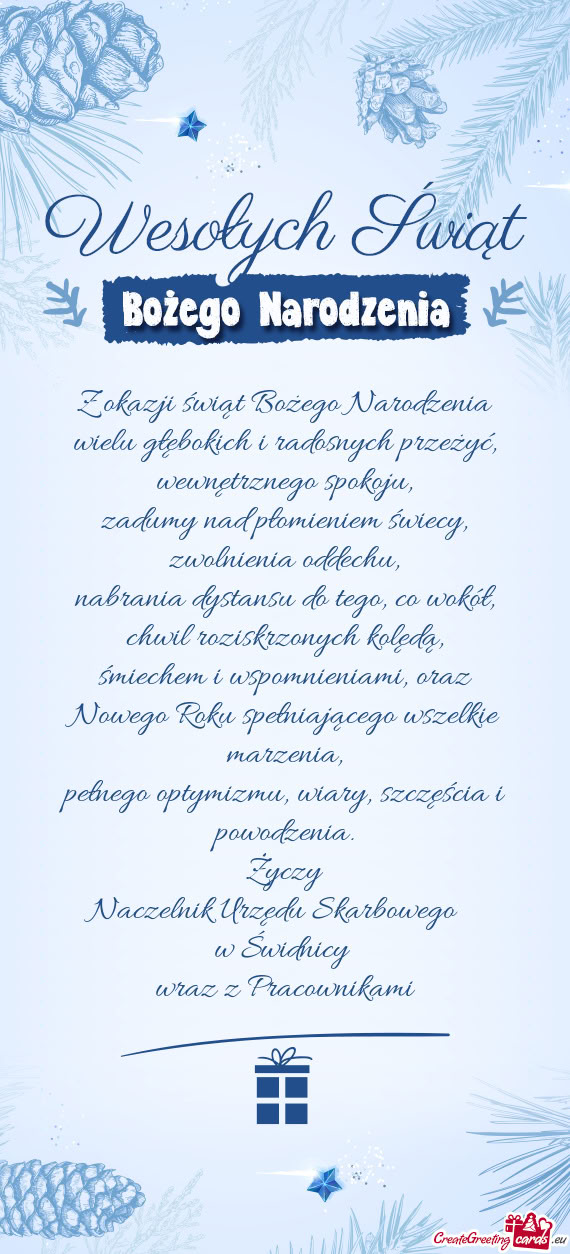 Wesołych Świąt
Bożego Narodzenia
Z okazji świąt Bożego Narodzenia
wielu głębokich i radosnych przeżyć,
wewnętrznego spokoju,
zadumy nad płomieniem świecy,
zwolnienia oddechu,
nabrania dystansu do tego, co wokół,
chwil roziskrzonych kolędą,
śmiechem i wspomnieniami, oraz
Nowego Roku spełniającego wszelkie
marzenia,
pełnego optymizmu, wiary, szczęścia i
powodzenia.
Życzy
Naczelnik Urzędu Skarbowego
w Świdnicy
wraz z Pracownikami
CreateGreeting cards .eu